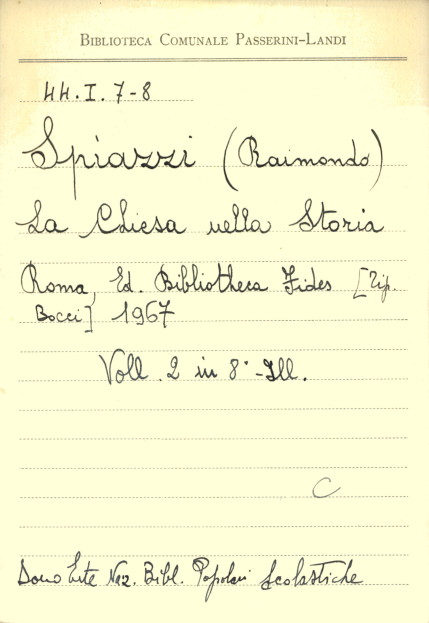 BIBLIOTECA COMUNALE PASSERINI-LANDI
44.I.7-8
Spiazzi (Raimondo)
La Chiesa nella Storia
Roma, Ed. Bibliotheca Fides [Tip.
Bocci] 1967
Voll. 2 in 8° - Ill.
C
Dono Ente Naz. Bibl. Popolari Scolastiche